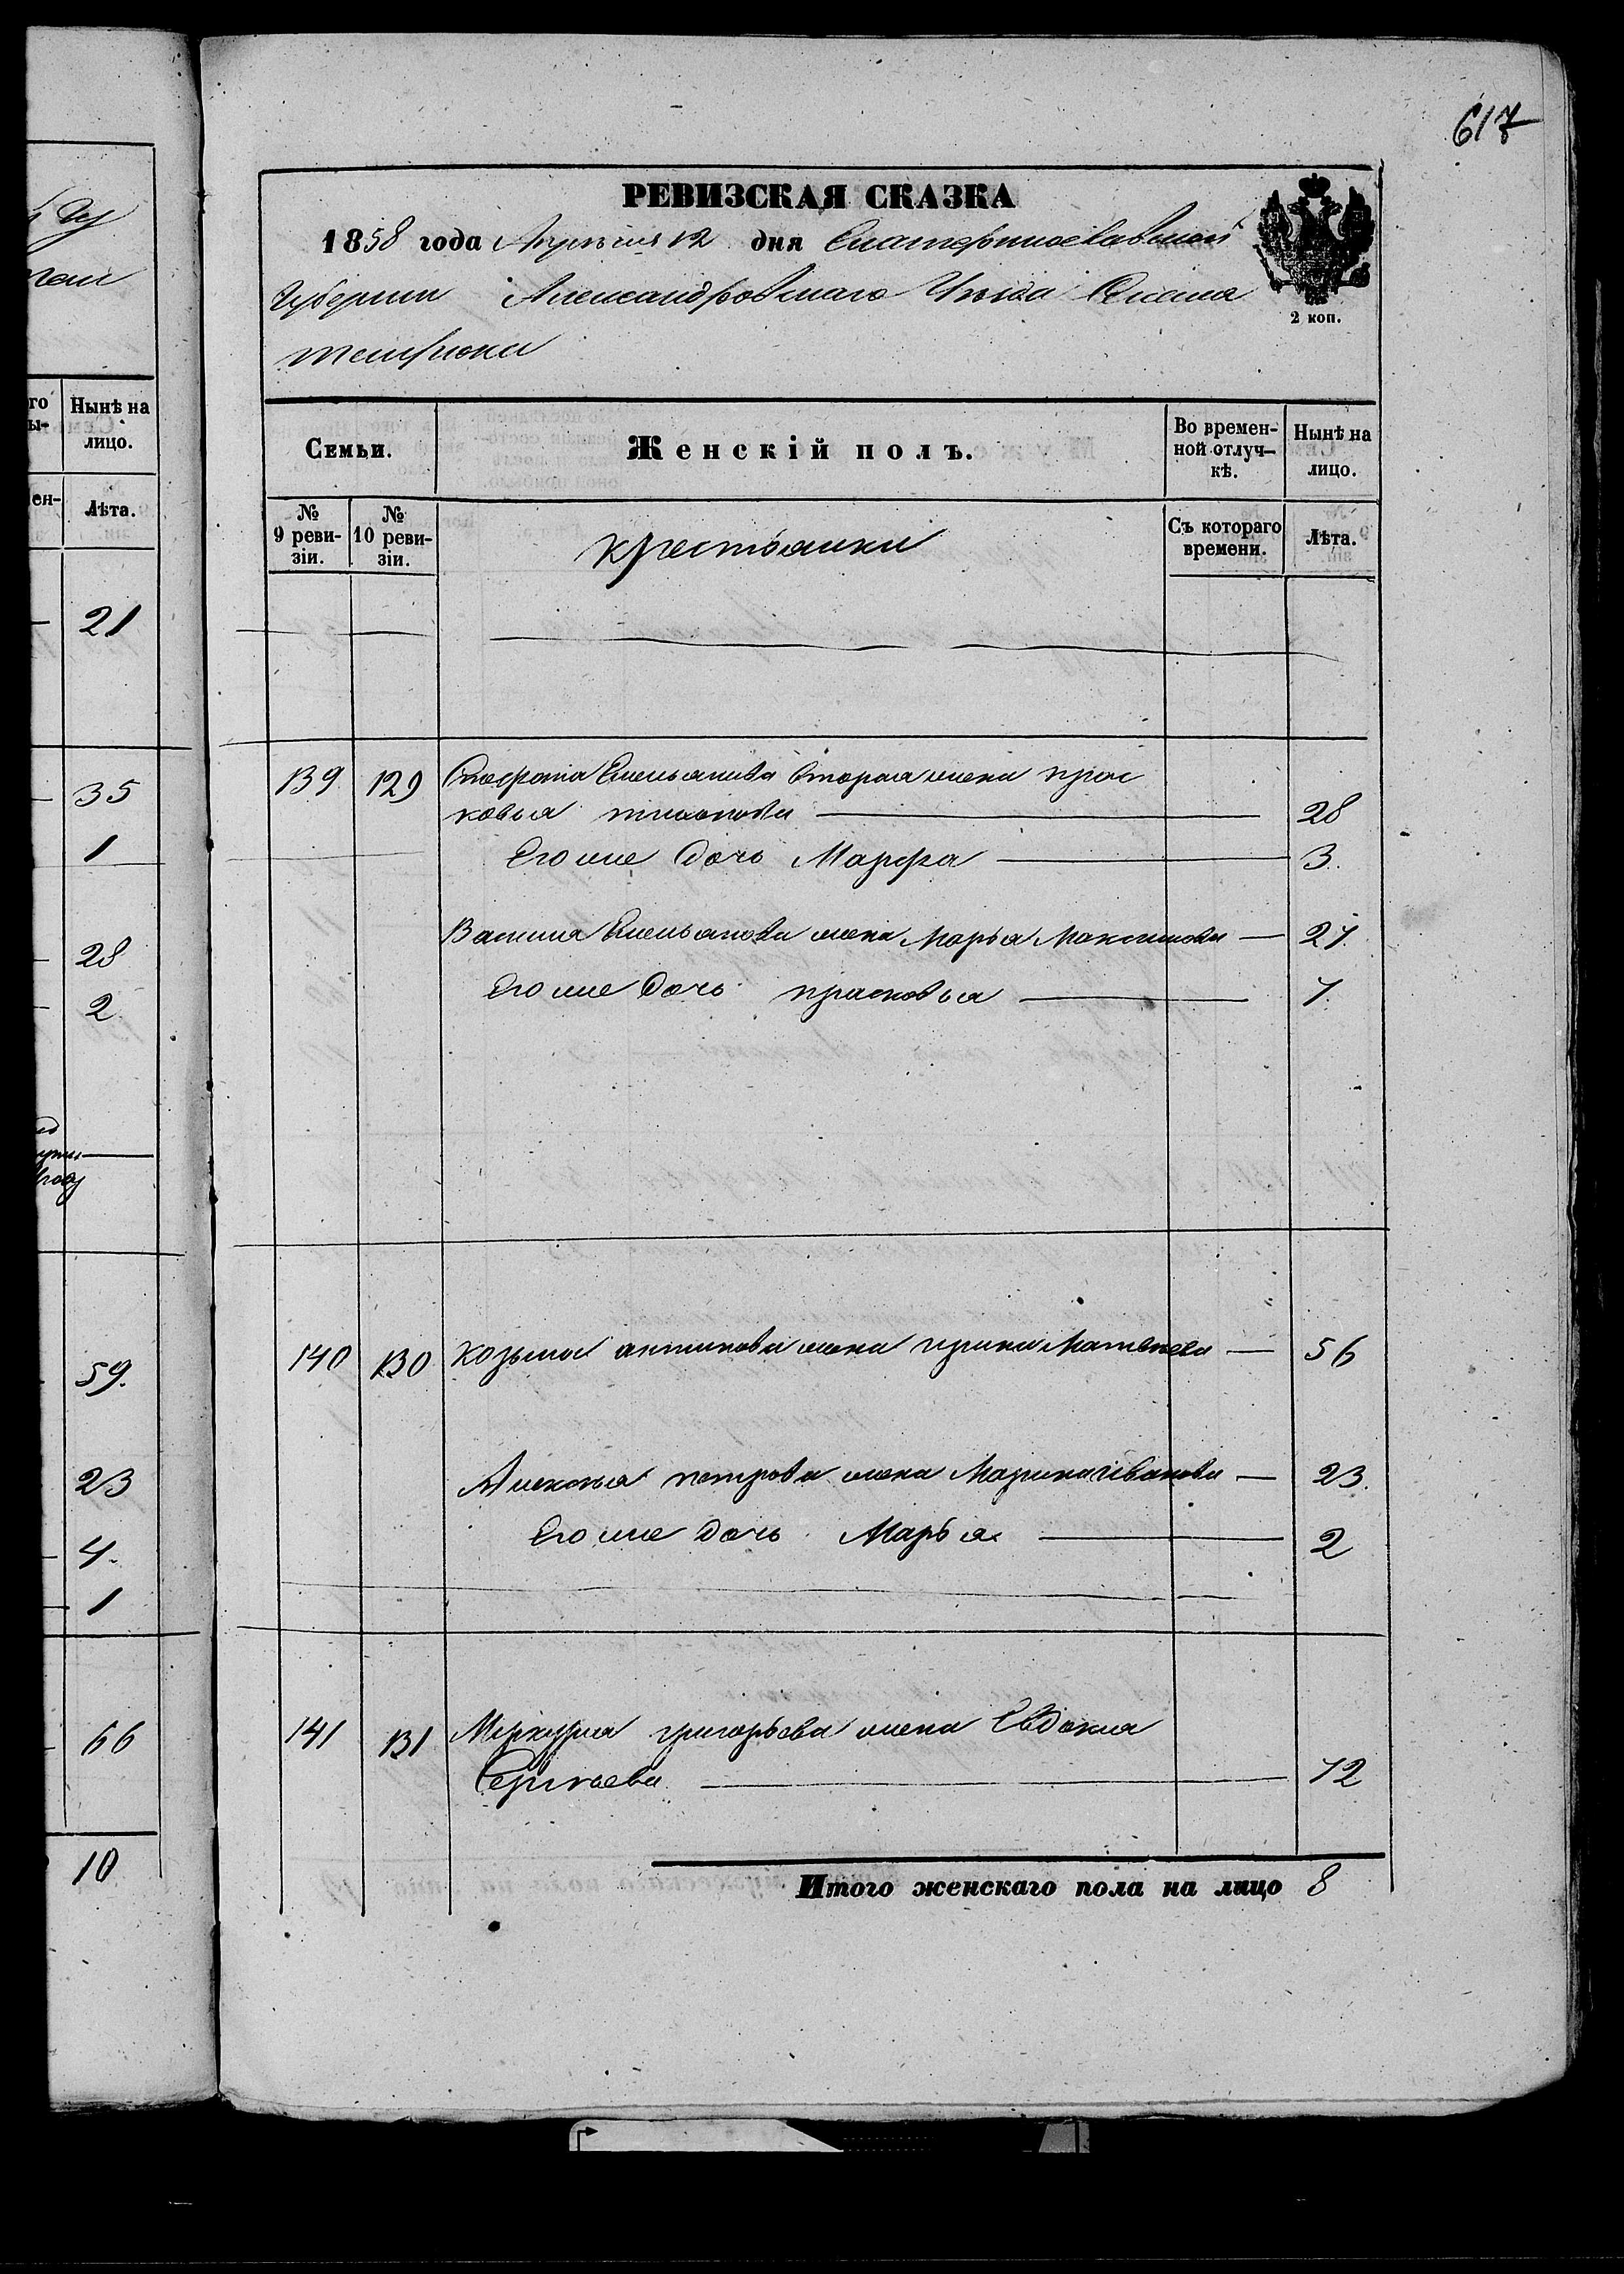 617
РЕВИЗСКАЯ СКАЗКА
1858 года Апрѣля 12 дня Екатеринославской
Губернии Александровскаго Уѣзда Селенія
темрюка
2 коп.
го
ы-
Нынѣ на
лицо.
ен-
Лѣта.
21
35
1
28
2
59.
23
4
1
66
10
Семьи.
Женскій полъ.
Во времен-
ной отлуч-
кѣ.
Нынѣ на
лицо.
№
9 реви-
зіи.
№
10 реви-
зіи.
крестьянки
Съ котораго
времени.
Лѣта.
139 129 Емельянова вторая жена прас
ковья 28
Его же дочь Марфа 3.
Василия Емельянова жена Марья Максимова 27
Его же дочь прасковья 7
140 130 Козьма антипова жена ирина Матвеева 56
Алексея петрова жена Марина Иванова 23.
Его же дочь Марья 2
141 131 Меркурия григорьева жена Евдокия
Сергеева 72
Итого женскаго пола на лицо 8